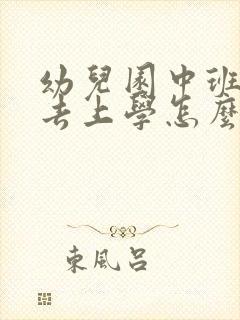 幼兒園中班
去上學怎麼
東風呂